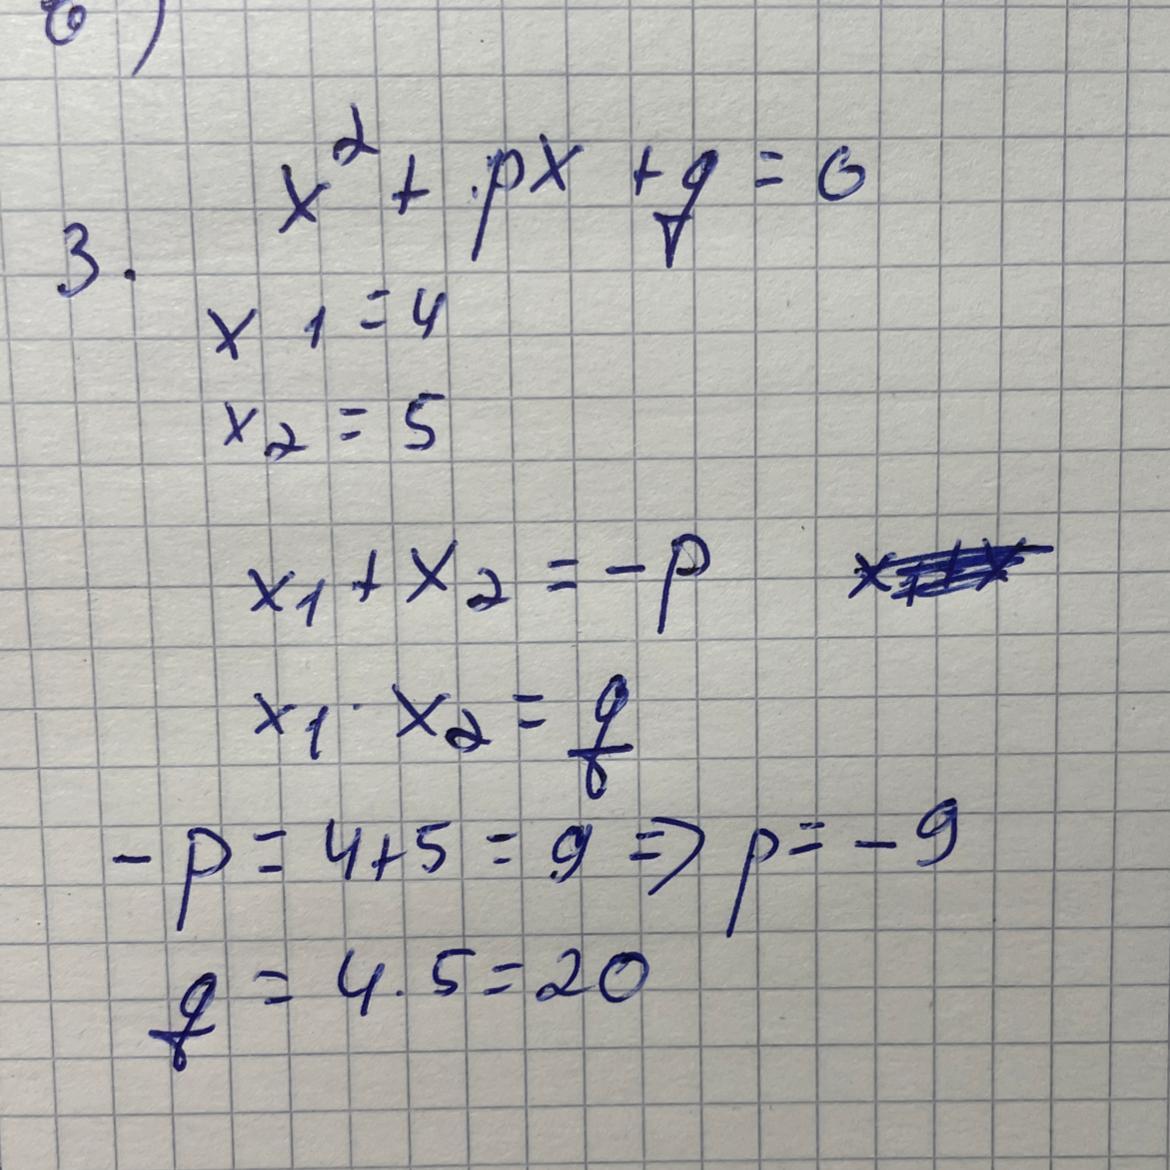 б)
x² + px + q = 0
3.
x₁ = 4
x₂ = 5
x₁ + x₂ = -p
x₁ · x₂ = q
-p = 4+5 = 9 => p = -9
q = 4 · 5 = 20